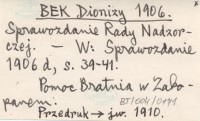 BEK Dionizy 1906.
Sprawozdanie Rady Nadzor-
czej. — W: Sprawozdanie
1906 d, s. 39-41.
Pomoc Bratnia w Zako-
panem.
BT/004/0171
Przedruk → jw. 1910.